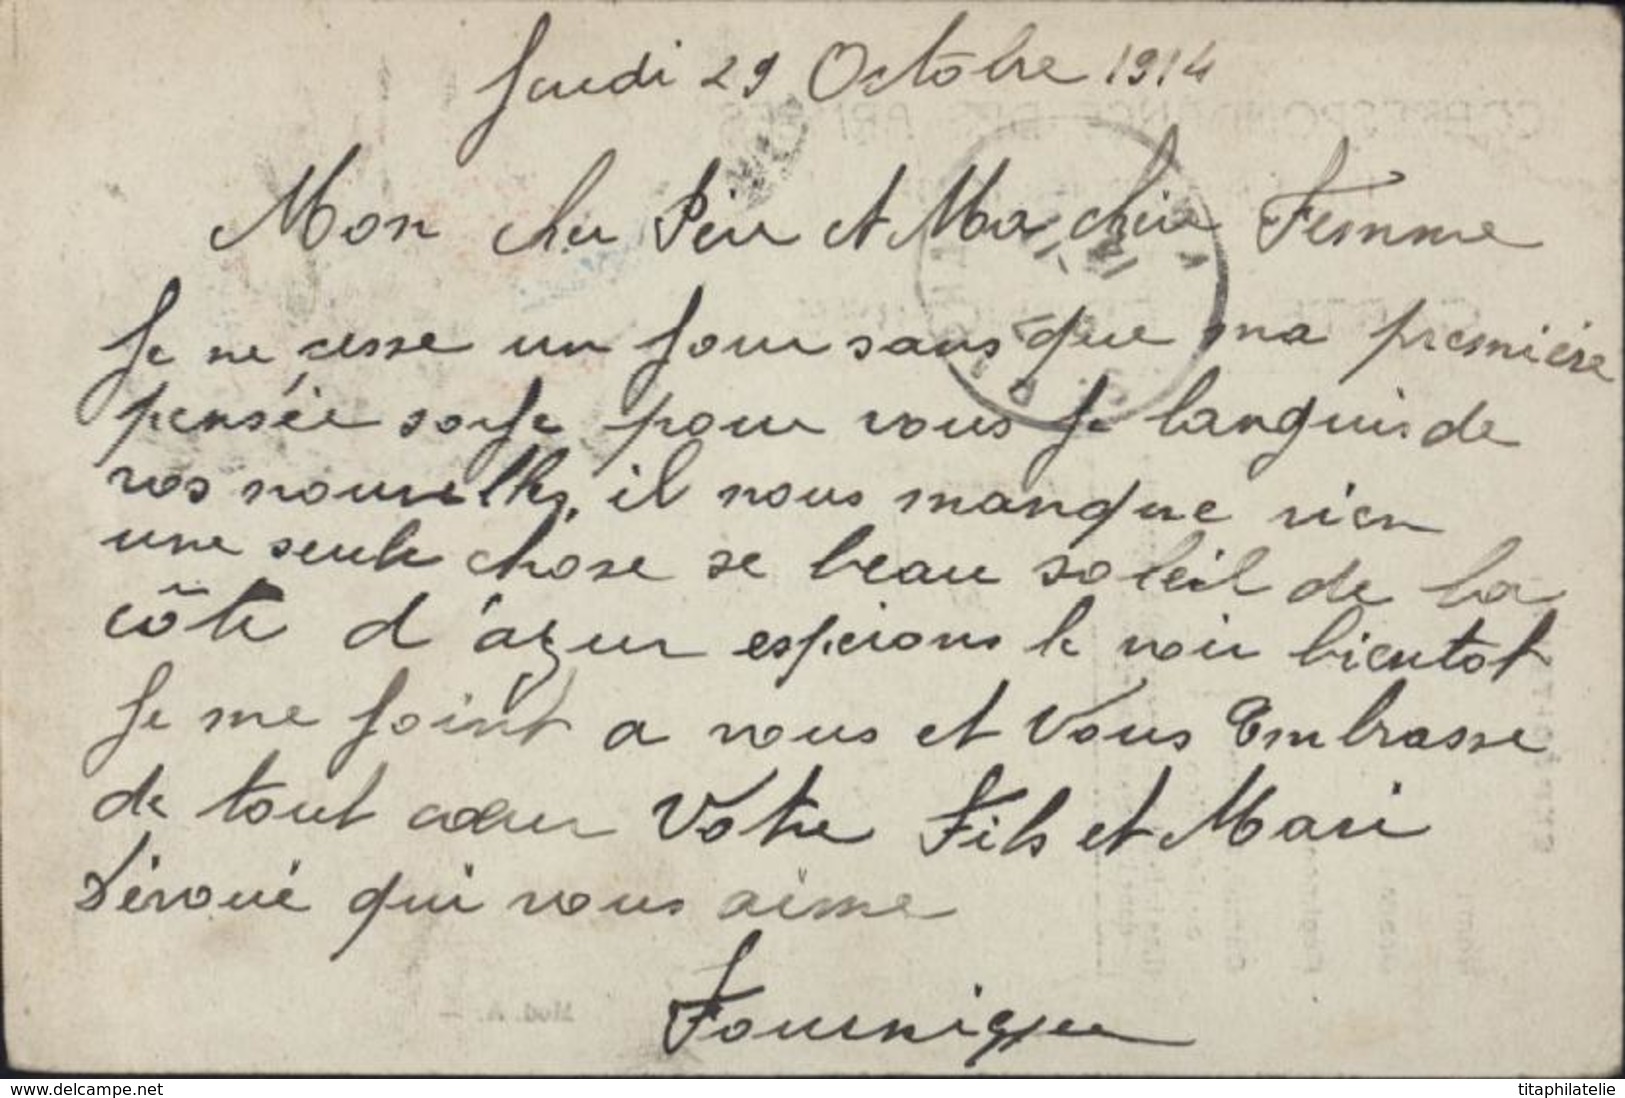 Jeudi 29 Octobre 1914
Mon cher Père et Ma chère Femme
Je ne cesse un jour sans que ma première
pensée soije pour vous Je languis de
vos nouvelles, il nous manque rien
une seule chose se beau soleil de la
côte d'azur esperons le voir bientot
Je me joint a vous et Vous Embrasse
de tout cœur Votre Fils et Mari
Dévoué qui vous aime
www.delcampe.net
titaphilatelie